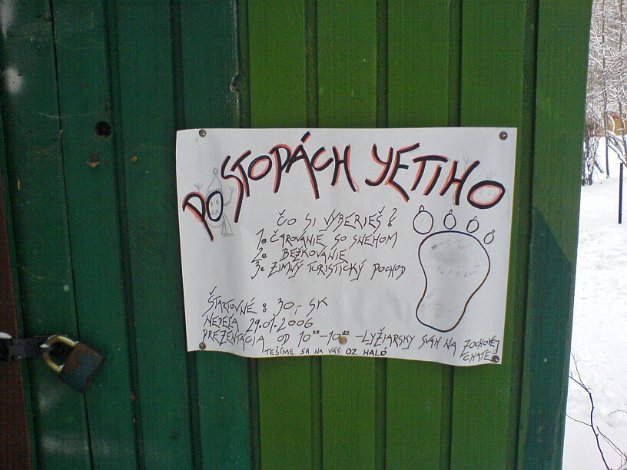 PO STOPÁCH YETIHO
ČO SI VYBERIEŠ?
1. ČAROVANIE SO SNEHOM
2. BEŽKOVANIE
3. ZIMNÝ TURISTICKÝ POCHOD
ŠTARTOVNÉ: 30,- SK
NEDEĽA 29.01.2006
PREZENTÁCIA OD 10⁰⁰-10³⁰ - LYŽIARSKY SVAH NA ZOCHOVEJ
CHATE
TEŠÍME SA NA VÁS OZ HALÓ